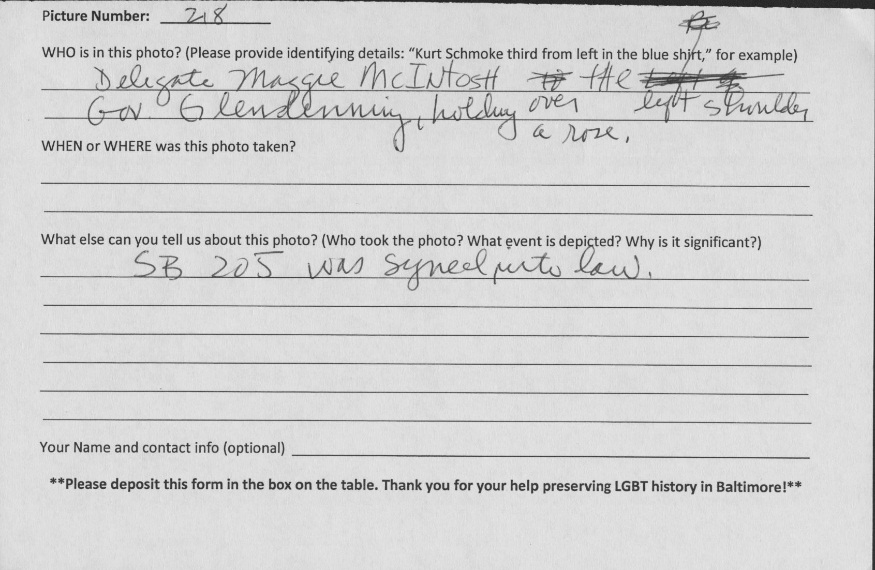 Picture Number: 218
WHO is in this photo? (Please provide identifying details: “Kurt Schmoke third from left in the blue shirt,” for example)
Delegate Maggie McIntosh to the
Gov. Glendenning, holding over left shoulder
a rose.
WHEN or WHERE was this photo taken?
What else can you tell us about this photo? (Who took the photo? What event is depicted? Why is it significant?)
SB 205 was syned into law.
Your Name and contact info (optional)
**Please deposit this form in the box on the table. Thank you for your help preserving LGBT history in Baltimore!**